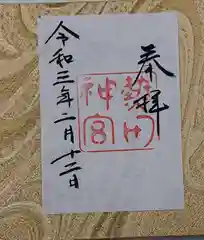 奉拝
神宮
令和三年二月十二日